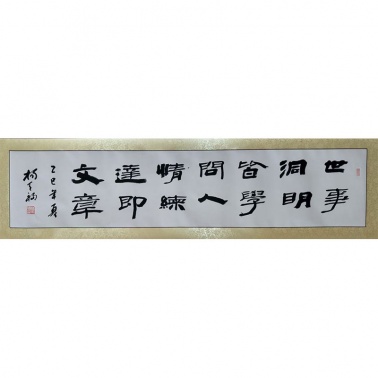 世事
洞明
皆學
問人
情練
達即
文章
乙巳年夏